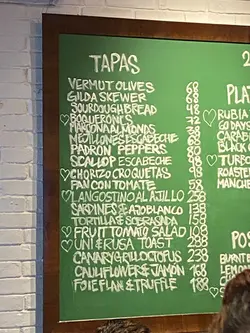 TAPAS
VERMUT OLIVES 68
GILDA SKEWER 68
SOURDOUGH BREAD 48
♡ BOQUERONES 72
MARCONA ALMONDS 38
MEJILLONES ESCABECHE 68
PADRON PEPPERS 68
SCALLOP ESCABECHE 68
♡ CHORIZO CROQUETAS 98
PAN CON TOMATE 58
♡ LANGOSTINO AL AJILLO 258
SARDINES & AJO BLANCO 138
TORTILLA & SOBRASADA
♡ FRUIT TOMATO SALAD 108
♡ UNI & RUSA TOAST 288
CANARY GRILL OCTOPUS 238
CAULIFLOWER & JAMON 168
FOIE FLAN & TRUFFLE 188
2
PLA
♡ RUBIA
GO
CAR
BLACK
♡ TURBO
ROAST
MAN
POS
BURNT
LEMON